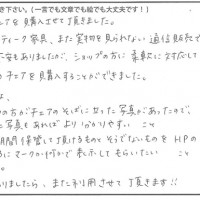 き下さい。(一言でも文章でも絵でも大丈夫です!)
を購入させて頂きました。
ティーク家具、また実物を見られない通信販売で
不安もありましたが、ショップの方に柔軟に対応して
チェアを購入することができました。
は、
の方がチェアのそばに立った写真があったので、
写真もあればより分かりやすい こと
期間保管して頂けるものとそうでないものを HPの
にマークか何かで表示してもらいたい こと
ありましたら、また利用させて頂きます!!